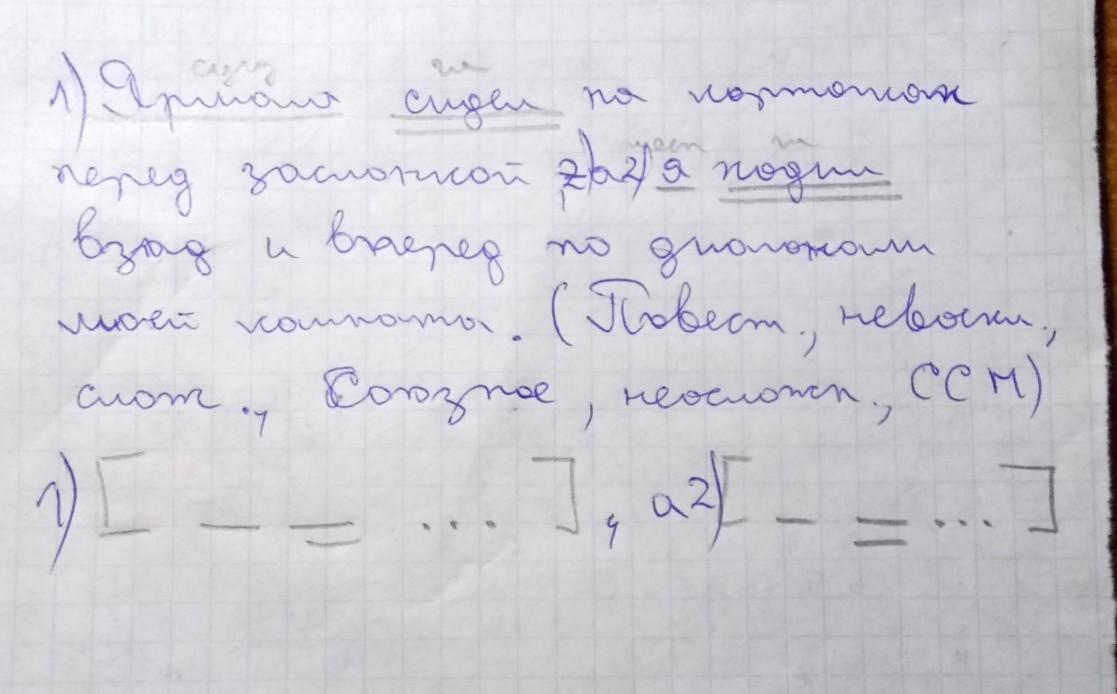 сущ гл
1) Ярмола сидел на корточках
мест гл
перед заслонкой, а 2) я ходил
взад и вперед по диагонали
моей комнаты. (Повест., невоскл.,
слож., Союзное, неосложн., ССП)
1) [ — = ... ], а 2) [ — = ... ]